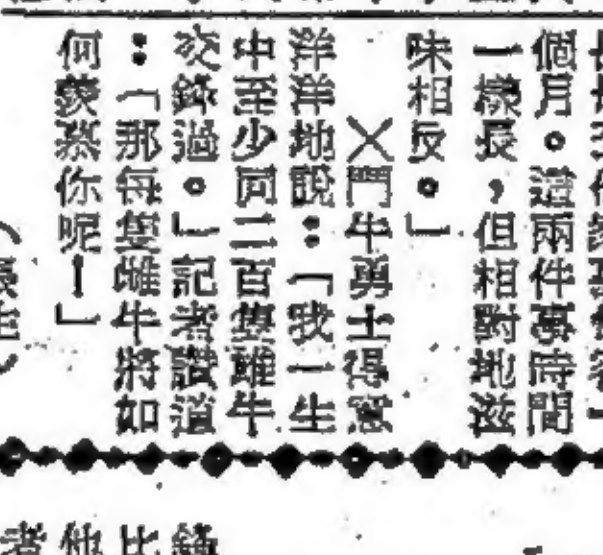 個月。這兩件事時間
一樣長，但相對地滋
味相反。」
╳鬥牛勇士得意
洋洋地說：「我一生
中至少同二百隻雄牛
交鋒過。」記者讚道
：「那每隻雌牛將如
何羨慕你呢！」